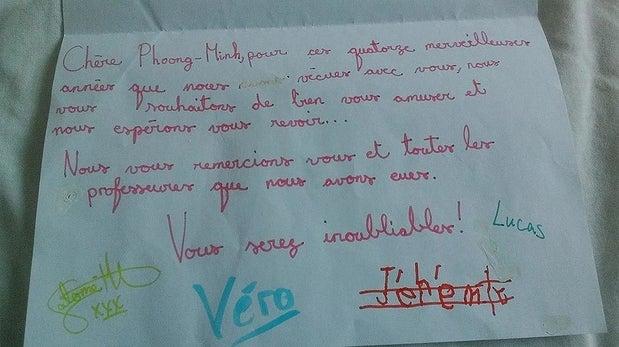 Chère Phoong-Minh, pour ces quatorze merveilleuses
années que nous vécues avec vous, nous
vous souhaitons de bien vous amuser et
nous espérons vous revoir...
Nous vous remercions vous et toutes les
professeures que nous avons eues.
Vous serez inoubliables!
Lucas
xxx
Véro